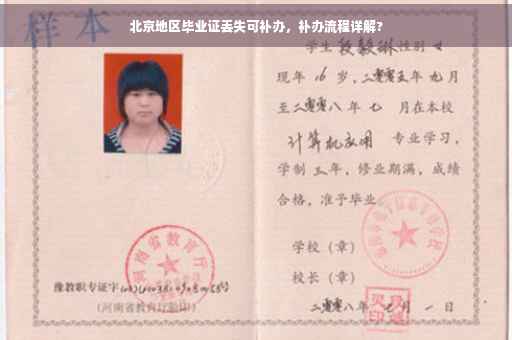 北京地区毕业证丢失可补办，补办流程详解？
样 本
学生 段毅琳 性别 女
现年 16 岁，二零零五年 九 月
至二零零八年 七 月在本校
计算机应用 专业学习，
学制 三 年，修业期满，成绩
合格，准予毕业
学校（章）
校长（章）
二零零八年 七 月 一 日
河南省教育厅
豫教职专证字
（河南省教育厅验印）